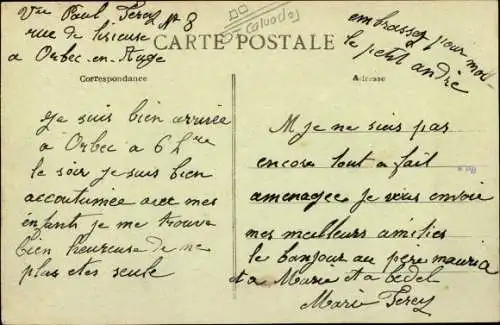 Vve Paul Ferey N° 8
rue de lisieuse
a Orbec-en-Auge
(Calvados)
embrassez pour moi
le petit andré
CARTE POSTALE
Correspondance
Adresse
je suis bien arrivée
à Orbec a 6 hre
le soir je suis bien
accoutumée avec mes
enfants je me trouve
bien heureuse de ne
plus etes seule
M je ne suis pas
encore tout a fait
amenagee je vous envoie
mes meilleurs amities
le bonjour au père mauria
et a Marie et a bedel
Marie Ferey